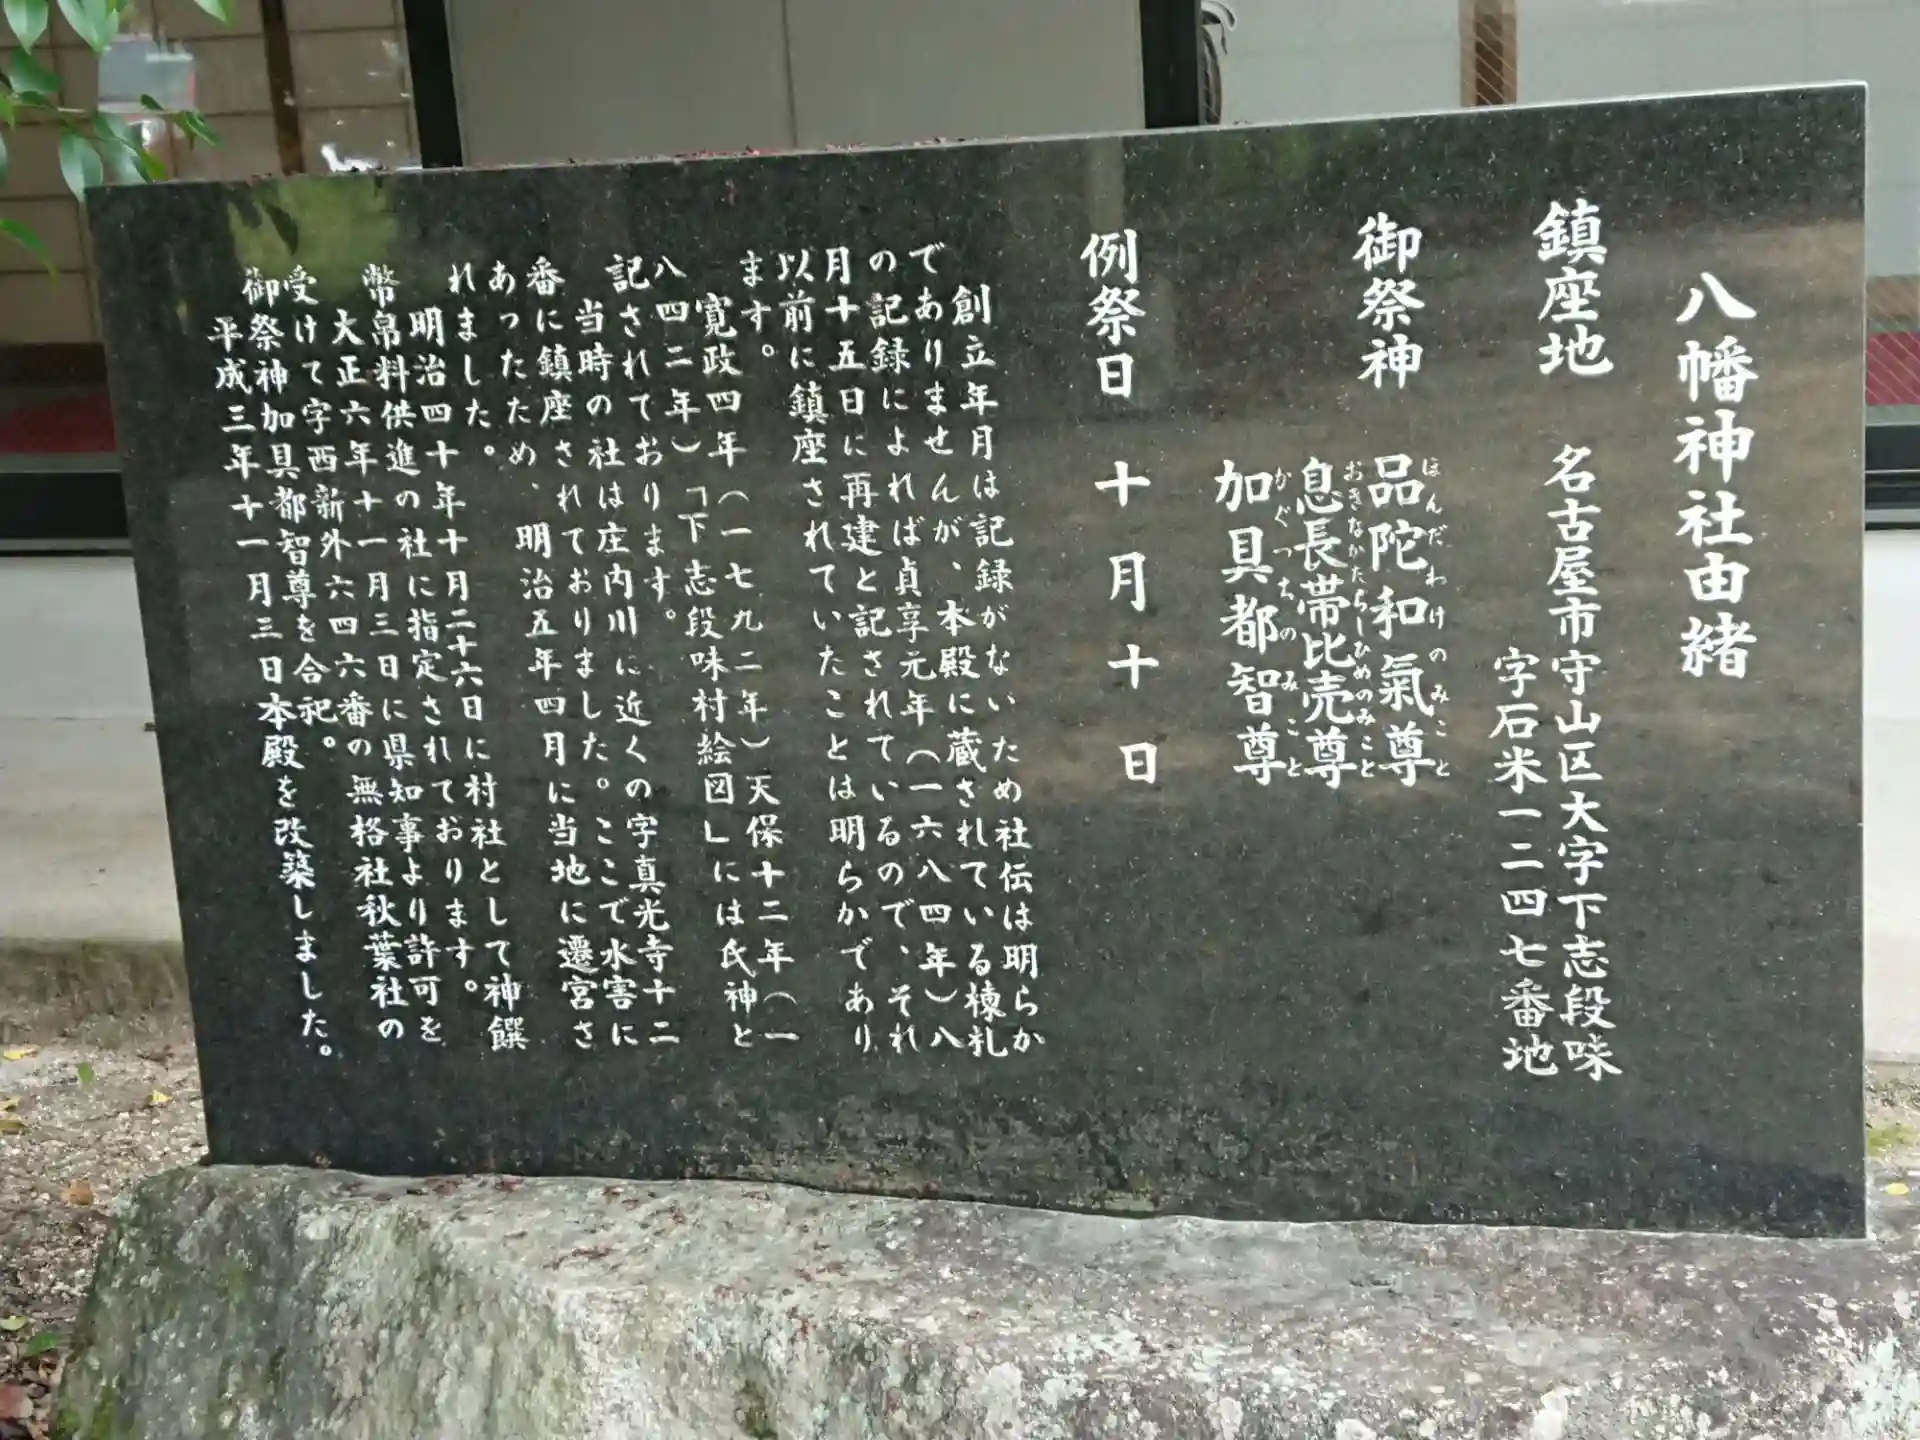 八幡神社由緒
鎮座地 名古屋市守山区大字下志段味
字石米一二四七番地
御祭神 品陀和氣尊
ほんだわけのみこと
息長帯比売尊
おきながたらしひめのみこと
加具都智尊
かぐつちのみこと
例祭日 十月十日
創立年月は記録がないため社伝は明らか
でありませんが、本殿に蔵されている棟札
の記録によれば貞享元年（一六八四年）八
月十五日に再建と記されているので、それ
以前に鎮座されていたことは明らかであり
ます。
寛政四年（一七九二年）天保十二年（一
八四二年）「下志段味村絵図」には氏神と
記されております。
当時の社は庄内川に近くの字真光寺十二
番に鎮座されておりました。ここで水害に
あったため、明治五年四月に当地に遷宮さ
れました。
明治四十年十月二十六日に村社として神饌
幣帛料供進の社に指定されております。
大正六年十一月三日に県知事より許可を
受けて字西新外六四六番の無格社秋葉社の
御祭神加具都智尊を合祀。
平成三年十一月三日本殿を改築しました。